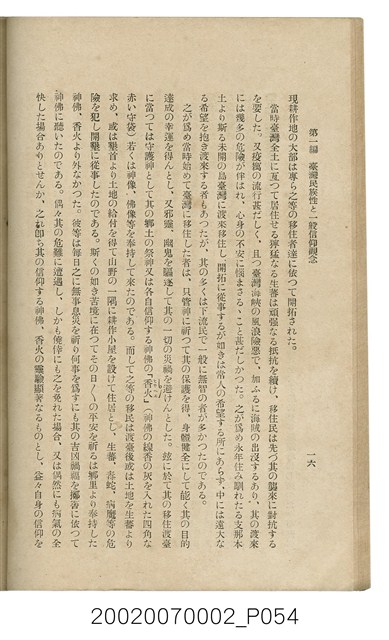 第一編　臺灣民族性と一般信仰觀念
一六
現耕作地の大部は專ら之等の移住者達に依つて開拓された。
當時臺灣全土に亙つて居住せる獰猛なる生蕃は頑强なる抵抗を續け、移住民は先づ其の襲來に對抗する
を要した。又疫癘の流行甚だしく、且つ臺灣海峽の風浪險惡で、加ふるに海賊の出沒するあり、其の渡來
には幾多の危險が伴はれ、心身の不安に惱まさるゝこと甚だしかつた。之が爲め永年住み馴れたる支那本
土より斯る未開の島臺灣に渡來移住し、開拓に從事するが如きは常人の希望する所にあらず、中には遠大な
る希望を抱き渡來する者もあつたが、其の多くは下流民で一般に無智の者が多かつたのである。
之が爲め當時始めて臺灣に移住した者は、只管神に祈つて其の保護を得、身體健全にして能く其の目的
達成の幸運を得んとし、又邪靈、幽鬼を驅逐して其の一切の災禍を避けんとした。玆に於て其の移住渡臺
に當つては守護神として其の鄕土の祭神又は各自信仰する神佛の「香火」（神佛の線香の灰を入れた四角な
赤い守袋）若くは神像、佛像等を奉持して來たのである。而して之等の移民は渡臺後或は土地を生蕃より
求め、或は墾首より土地の給付を得て山野の一隅に耕作小屋を設けて住居とし、生蕃、毒蛇、病魔等の危
險を犯し開墾に從事したのである。斯くの如き苦境に在つて其の日〳〵の平安を祈るは鄕里より奉持した
神佛、香火より外なかつた。彼等は每日之に無事息災を祈り何事を爲すにも其の吉凶禍福を擲筶に依つて
神佛に聽いたのである。偶々其の危難に遭遇し、しかも僥倖にも之を免れた場合、又は偶然にも病氣の全
快した場合ありとせんか、之れ卽ち其の信仰する神佛、香火の靈驗顯著なるものとし、益々自身の信仰を
20020070002_P054